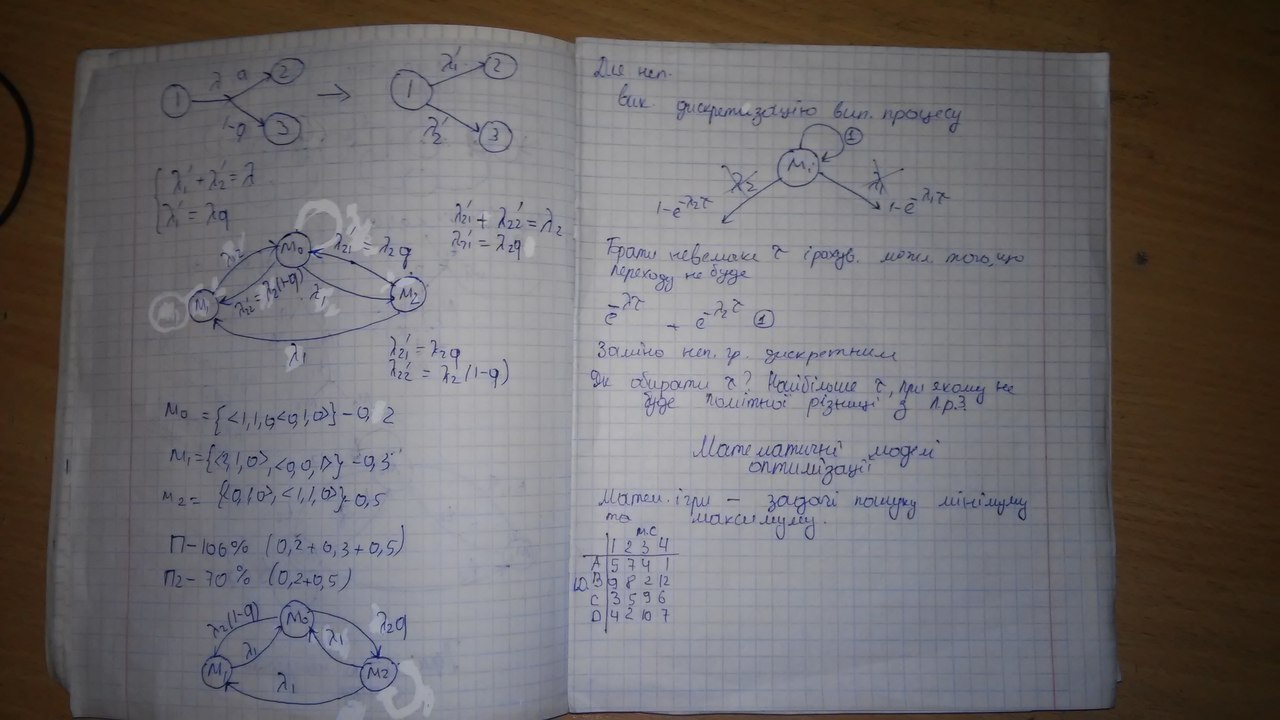 λ q
1 2
1-q 3
λ₁'
1 2
λ₂' 3
λ₁' + λ₂' = λ
λ₁' = λq
λ₂₁' + λ₂₂' = λ₂
λ₂₁' = λ₂q
M₀
λ₂₁' = λ₂q
λ₂₂' = λ₂(1-q)
λ₁
M₁ M₂
λ₁
λ₂₁' = λ₂q
λ₂₂' = λ₂(1-q)
M₀ = {<1,1,0<0,1,0>} - 0,2
M₁ = {<0,1,0>, <0,0,1>} - 0,3
M₂ = {<0,1,0>, <1,1,0>} - 0,5
П - 100% (0,2 + 0,3 + 0,5)
П₂ - 70% (0,2+0,5)
λ₂(1-q) M₀ λ₂q
λ₁ λ₁
M₁ M₂
λ₁
Для неп.
вик. дискретизацію вип. процесу
1
Mᵢ
λ₂ λ₁
1-e^-λ₂τ 1-e^-λ₁τ
Брати невелике τ і рахув. можл. того, що
переходу не буде
e^-λτ + e^-λ₂τ 1
Заміна неп. гр. дискретним
Як обирати τ? Найбільше τ, при якому не
буде помітної різниці з л.р.3.
Математичні моделі
оптимізації
Матем. ігри – задачі пошуку мінімуму
та максимуму.
М.С
1 2 3 4
A 5 7 4 1
B 9 8 2 12
C 3 5 9 6
D 4 2 10 7